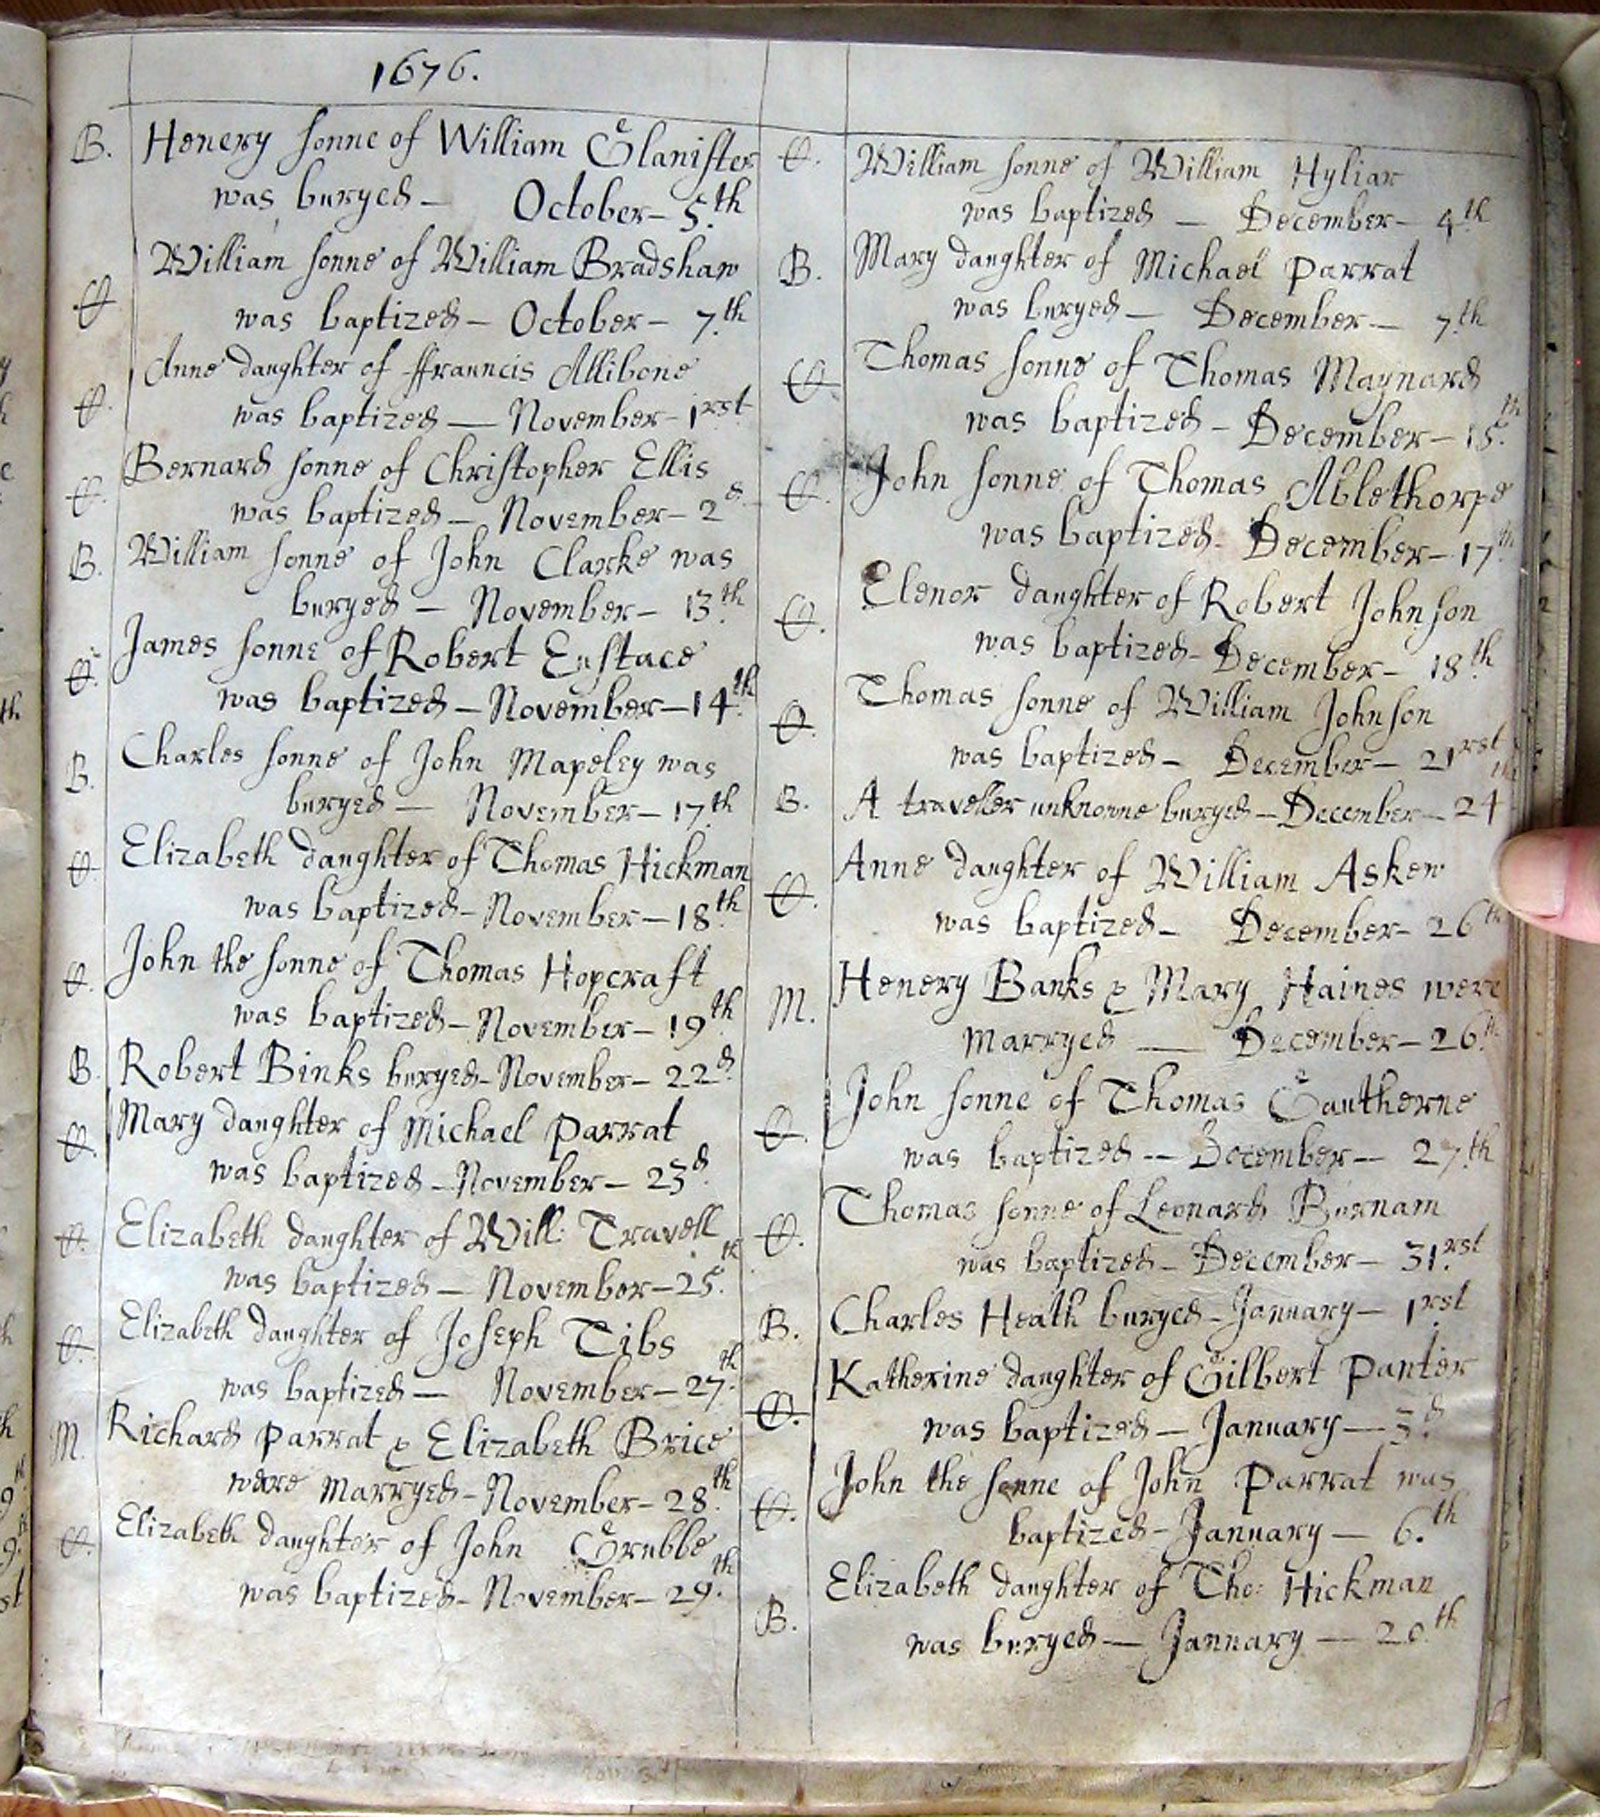 1676.
B. Henery sonne of William Glanister
was buryed — October — 5.th
William sonne of William Bradshaw
C. was baptized — October — 7.th
Anne daughter of ffrauncis Allibone
C. was baptized — November — 1rst
Bernard sonne of Christopher Ellis
C. was baptized — November — 2d
B. William sonne of John Clarke was
buryed — November — 13.th
James sonne of Robert Eustace
C. was baptized — November — 14.th
Charles sonne of John Mapeley was
B. buryed — November — 17.th
C. Elizabeth daughter of Thomas Hickman
was baptized — November — 18th
John the sonne of Thomas Hopcraft
C. was baptized — November — 19.th
B. Robert Binks buryed — November — 22.d
C. Mary daughter of Michael Parrat
was baptized — November — 23.d
C. Elizabeth daughter of Will: Travell
was baptized — November — 25.th
C. Elizabeth daughter of Joseph Tibs
was baptized — November — 27.th
M. Richard Parrat & Elizabeth Brice
were Marryed — November — 28.th
C. Elizabeth daughter of John Grubbe
was baptized — November — 29.th
C. William sonne of William Hyliar
was baptized — December — 4.th
B. Mary daughter of Michael Parrat
was buryed — December — 7.th
C. Thomas sonne of Thomas Maynard
was baptized — December — 15.th
C. John sonne of Thomas Ablethorpe
was baptized — December — 17th
Elenor daughter of Robert Johnson
C. was baptized — December — 18.th
Thomas sonne of William Johnson
C. was baptized — December — 21rst
B. A traveller unknowne buryed — December — 24th
Anne daughter of William Askew
C. was baptized — December — 26th
M. Henery Banks & Mary Haines were
Marryed — December — 26.th
John sonne of Thomas Gautherne
C. was baptized — December — 27.th
Thomas sonne of Leonard Burnam
C. was baptized — December — 31.rst
B. Charles Heath buryed — January — 1rst
Katherine daughter of Gilbert Panter
C. was baptized — January — 3.d
John the sonne of John Parrat was
C. baptized — January — 6.th
Elizabeth daughter of Tho: Hickman
B. was buryed — January — 20.th